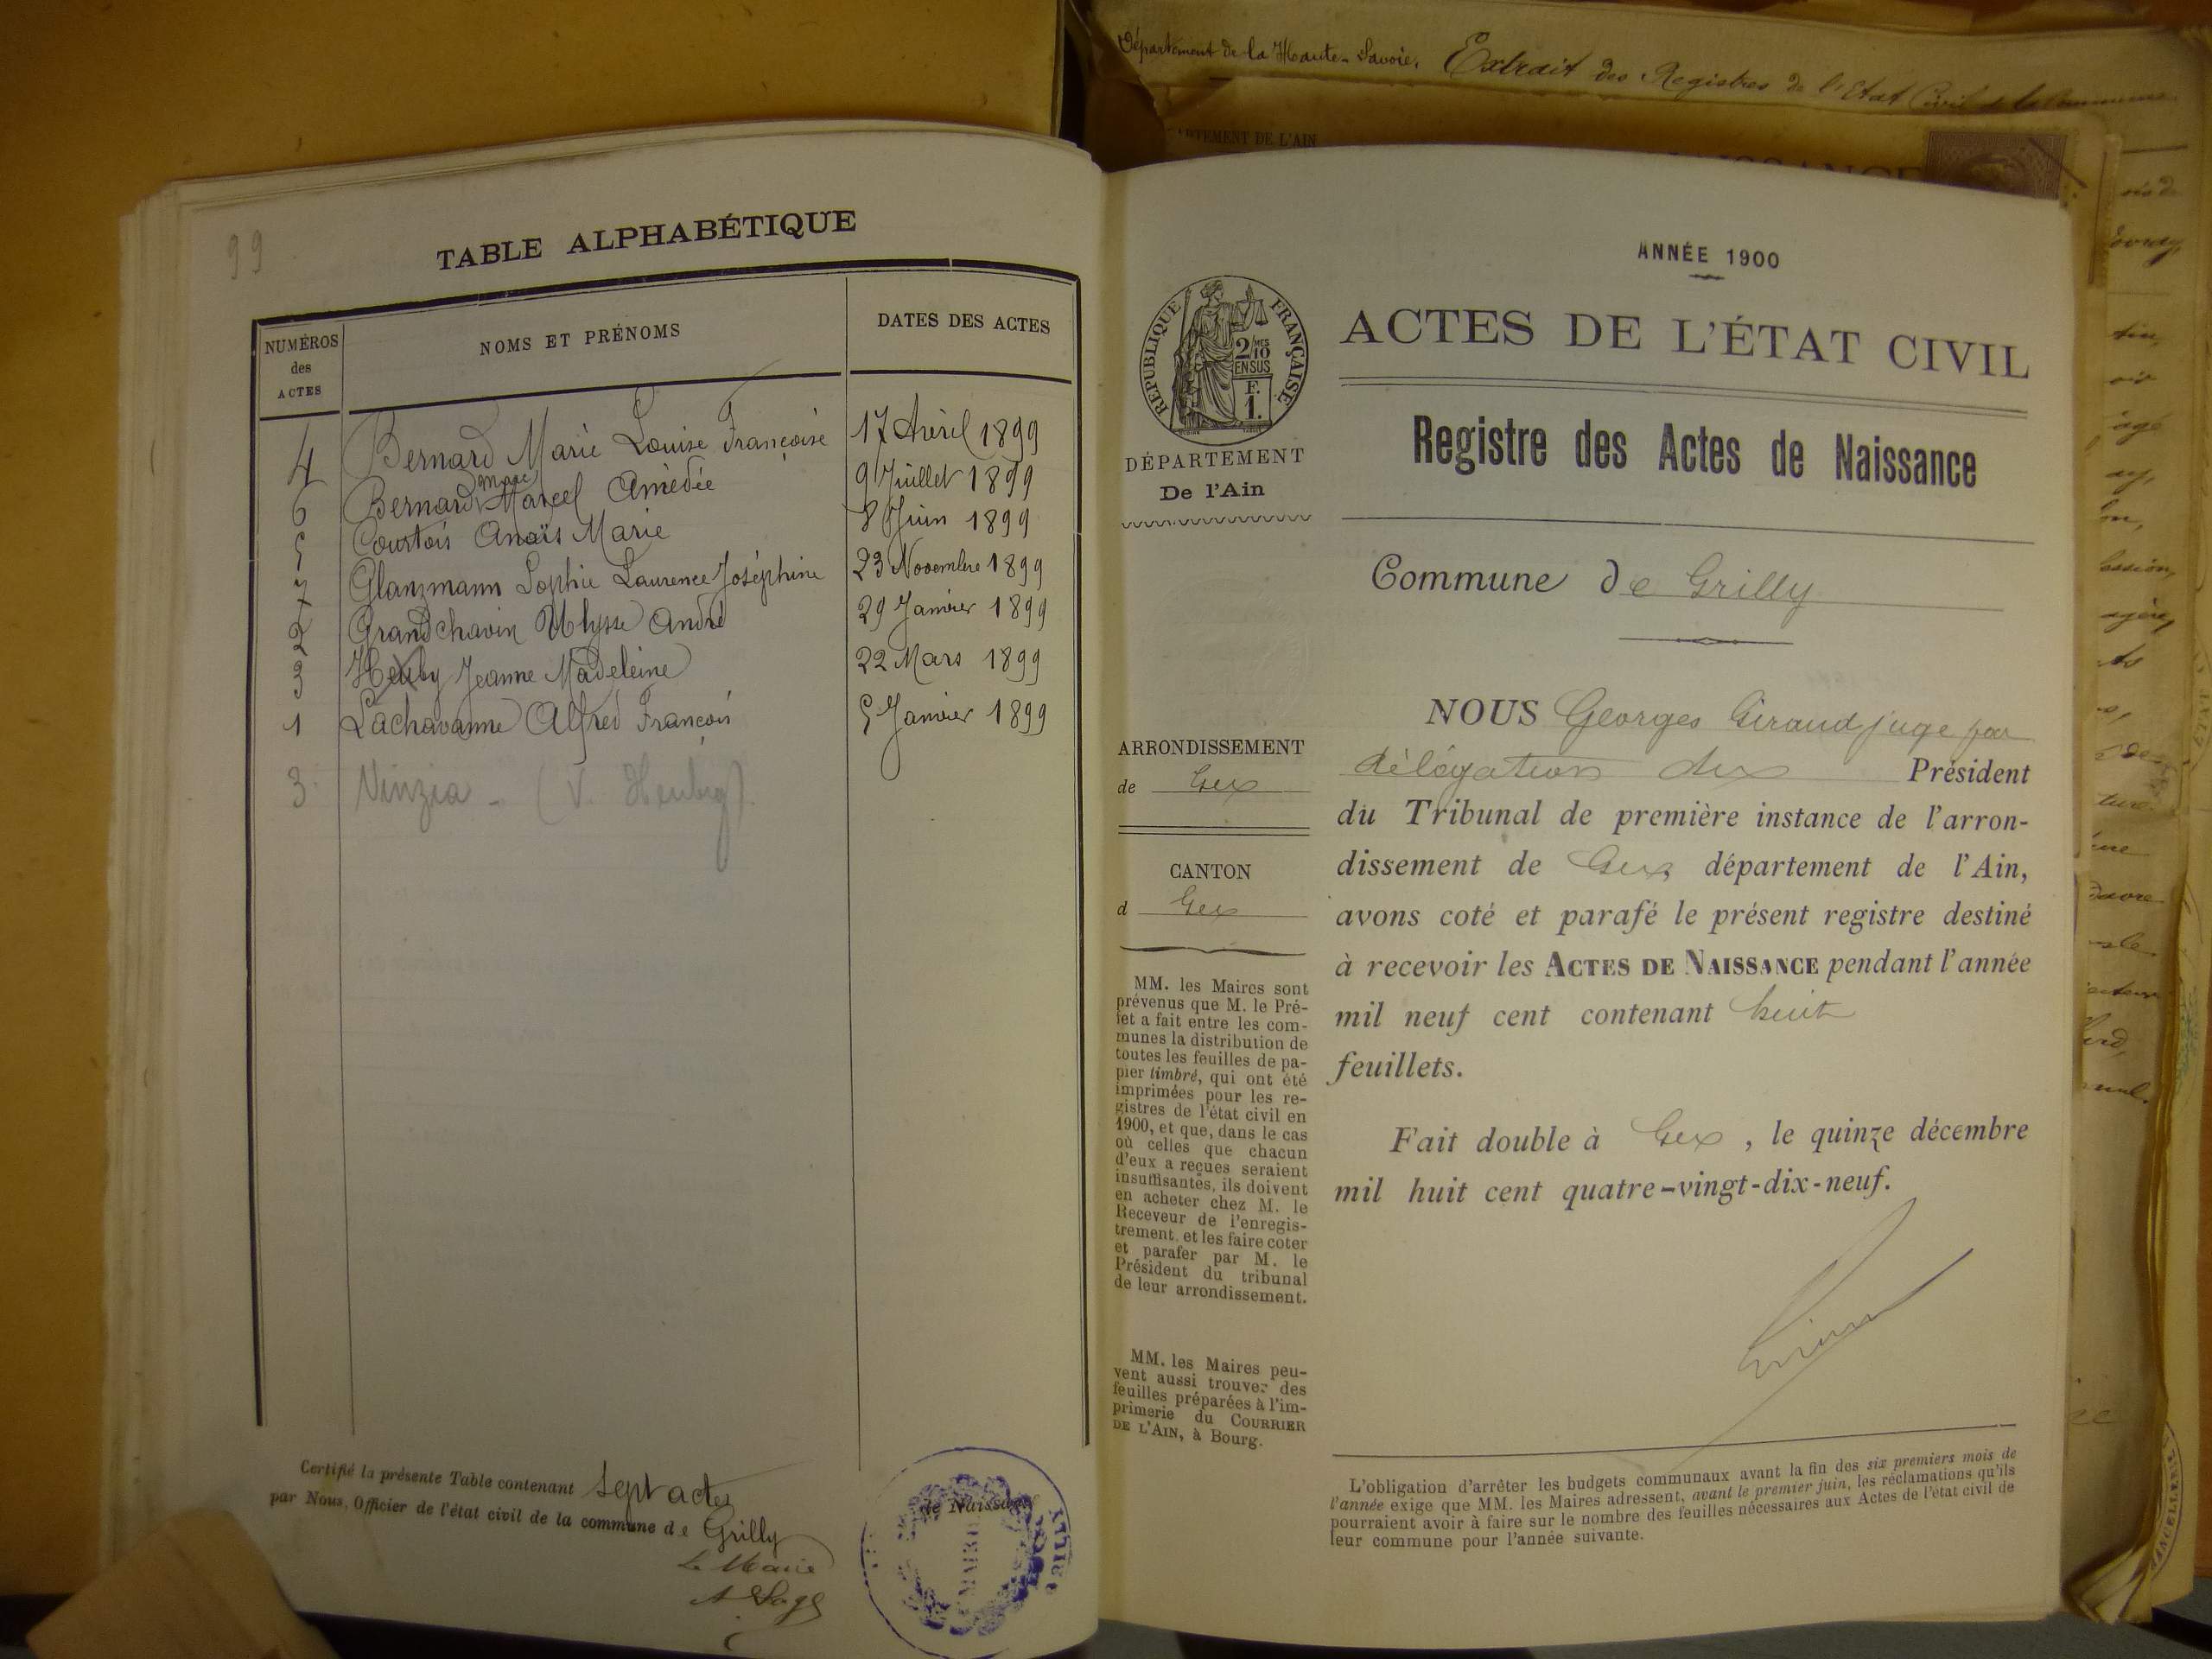 Département de la Haute-Savoie. Extrait des Registres de l'Etat Civil de la Commune
99
TABLE ALPHABÉTIQUE
NUMÉROS des ACTES
NOMS ET PRÉNOMS
DATES DES ACTES
4 Bernard Marie Louise Françoise 17 Avril 1899
6 Bernard Marc Marcel Amédée 9 Juillet 1899
5 Courtois Anaïs Marie 8 Juin 1899
7 Glanzmann Sophie Laurence Joséphine 23 Novembre 1899
2 Grandchavin Ulysse André 29 Janvier 1899
3 Heuby Jeanne Madeleine 22 Mars 1899
1 Lachavanne Alfred François 5 Janvier 1899
3 Vinzia - (V. Heuby).
Certifié la présente Table contenant sept actes
de Naissance
par Nous, Officier de l'état civil de la commune de Grilly
Le Maire
MAIRIE
GRILLY
DÉPARTEMENT DE L'AIN
ANNÉE 1900
RÉPUBLIQUE FRANÇAISE
2/10 MES
EN SUS
F.
1.
DÉPARTEMENT
De l'Ain
ARRONDISSEMENT
de Gex
CANTON
d Gex
MM. les Maires sont
prévenus que M. le Pré-
fet a fait entre les com-
munes la distribution de
toutes les feuilles de pa-
pier timbré, qui ont été
imprimées pour les re-
gistres de l'état civil en
1900, et que, dans le cas
où celles que chacun
d'eux a reçues seraient
insuffisantes, ils doivent
en acheter chez M. le
Receveur de l'enregis-
trement, et les faire coter
et parafer par M. le
Président du tribunal
de leur arrondissement.
MM. les Maires peu-
vent aussi trouver des
feuilles préparées à l'im-
primerie du COURRIER
DE L'AIN, à Bourg.
ACTES DE L'ÉTAT CIVIL
Registre des Actes de Naissance
Commune de Grilly
NOUS Georges Giraud juge par
délégation du Président
du Tribunal de première instance de l'arron-
dissement de Gex, département de l'Ain,
avons coté et parafé le présent registre destiné
à recevoir les ACTES DE NAISSANCE pendant l'année
mil neuf cent contenant huit
feuillets.
Fait double à Gex, le quinze décembre
mil huit cent quatre-vingt-dix-neuf.
L'obligation d'arrêter les budgets communaux avant la fin des six premiers mois de
l'année exige que MM. les Maires adressent, avant le premier juin, les réclamations qu'ils
pourraient avoir à faire sur le nombre des feuilles nécessaires aux Actes de l'état civil de
leur commune pour l'année suivante.